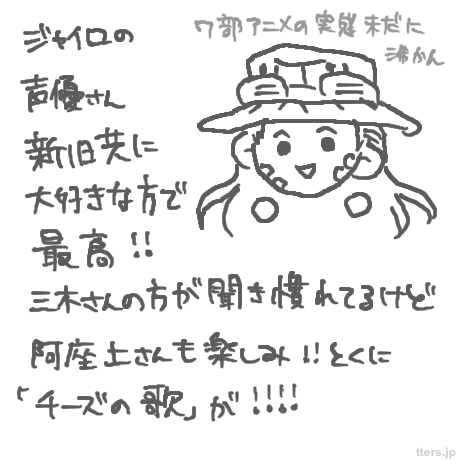 ジャイロの
声優さん
新旧共に
大好きな方で
最高!!
三木さんの方が聞き慣れてるけど
阿座上さんも楽しみ!!とくに
「チーズの歌」が!!!!
7部アニメの実感未だに
沸かん
tters.jp